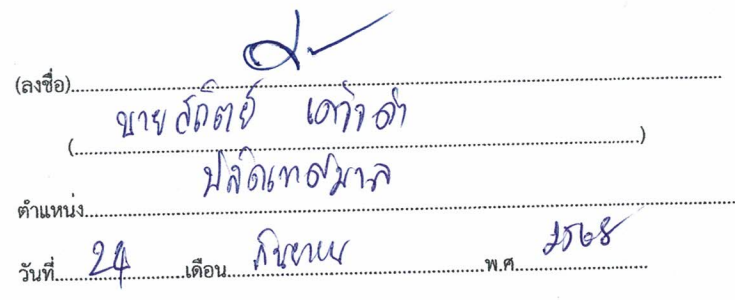 (ลงชื่อ)
(นายสถิตย์)
ตำแหน่ง ปลัดเทศบาล
วันที่ 24 เดือน กันยายน พ.ศ. 2568